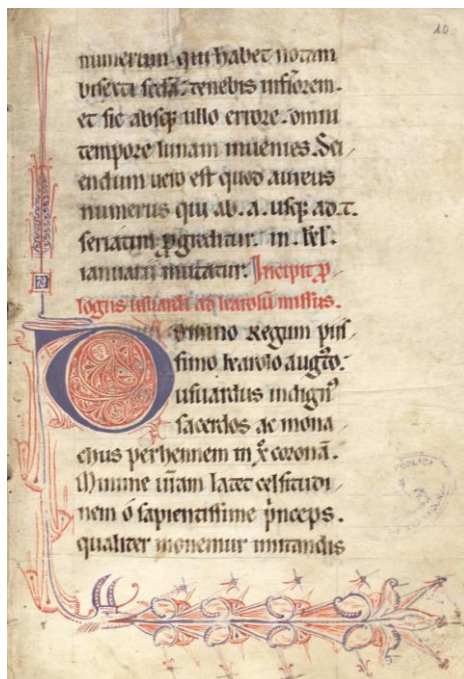 10.
numerum qui habet notam
bisexti scdā. tenebis inferiorem.
et sic absqȝ ullo errore. omni
tempore lunam inuenies. Sci
endum uero est quod aureus
numerus qui ab. a. usqȝ ad. t.
seriatim ꝓgreditur. in. kl'.
ianuarii mutatur. Incipit ꝓ
logus usuardi ad karolū missus.
Domino Regum piis
simo karolo augto.
usuardus indign9
sacerdos ac mona
chus perhennem in xp̄o coronā.
Minime ur̄am latet celsitudi
nem o sapientissime p̄nceps.
qualiter monemur imitandis